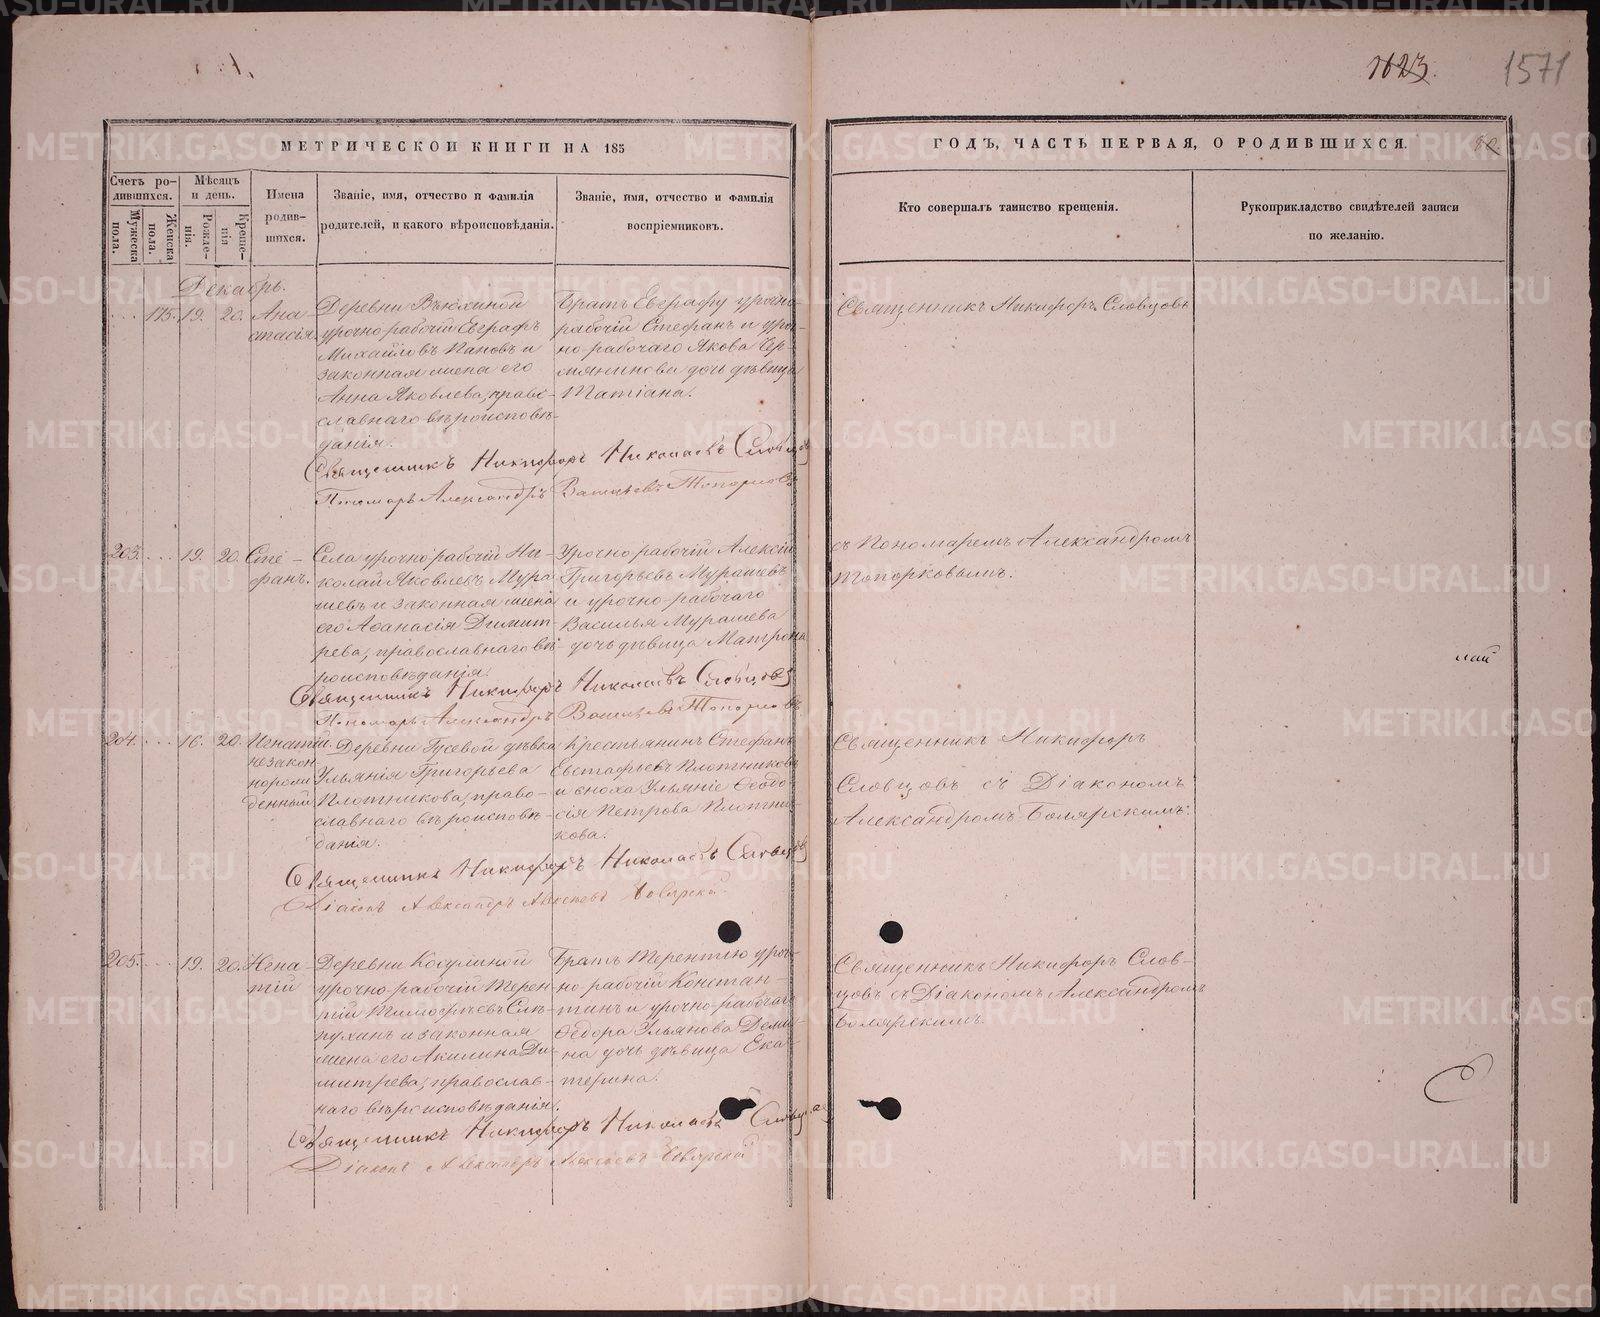 1623.
1571
МЕТРИЧЕСКОЙ КНИГИ НА 185
ГОДЪ, ЧАСТЬ ПЕРВАЯ, О РОДИВШИХСЯ.
Счетъ ро-
дившихся.
Мѣсяцъ
и день.
Мужеска
пола.
Женска
пола.
Рожде-
нія.
Креще-
нія
Имена
родив-
шихся.
Званіе, имя, отчество и фамилія
родителей, и какого вѣроисповѣданія.
Званіе, имя, отчество и фамилія
воспріемниковъ.
Кто совершалъ таинство крещенія.
Рукоприкладство свидѣтелей записи
по желанію.
Декабрь.
175. 19. 20.
Ана-
стасія.
урочно рабочій Евграфъ
Михайловъ Пановъ и
законная жена его
Анна Яковлева, право-
славнаго вѣроисповѣ-
данія.
Братъ Евграфу урочно-
рабочій Стефанъ и уроч-
но-рабочаго Якова
дочь дѣвица
Татіана.
Священникъ Никифоръ Словцовъ
Священникъ Никифоръ Николаевъ Словцовъ
Пономарь Александръ Топорковъ
203. 19. 20.
Сте-
фанъ.
Села урочно рабочій Ни-
колай Яковлевъ Мура-
шевъ и законная жена
его Аѳанасія Димит-
рева, православнаго вѣ-
роисповѣданія.
Урочно рабочій Алексій
Григорьевъ Мурашевъ
и урочно-рабочаго
Василья Мурашева
дочь дѣвица Матрона
съ Пономаремъ Александромъ
Топорковымъ.
Священникъ Никифоръ Николаевъ Словцовъ
Пономарь Александръ Топорковъ
204. 16. 20.
Игнатій
незакон-
норожденный
Деревни Гусевой дѣвка
Ульянія Григорьева
Плотникова, право-
славнаго вѣроисповѣ-
данія.
Крестьянинъ Стефанъ
Евстафьевъ Плотниковъ
и сноха Ульяніе Ѳеодо-
сія Петрова Плотни-
кова.
Священникъ Никифоръ
Словцовъ съ Діакономъ
Александромъ Болярскимъ.
Священникъ Никифоръ Николаевъ Словцовъ
Діаконъ Александръ Алексѣевъ Болярскій
205. 19. 20.
Игна-
тій
Деревни Косулиной
урочно-рабочій Терен-
тій Тимофѣевъ
и законная
жена его Акилина Ди-
митрева, православ-
наго вѣроисповѣданія.
Братъ Терентію уроч-
но рабочій Констан-
тинъ и урочно-рабочаго
Ѳедора Ульянова
дочь дѣвица Ека-
терина.
Священникъ Никифоръ Слов-
цовъ съ Діакономъ Александромъ
Болярскимъ.
Священникъ Никифоръ Николаевъ
Діаконъ Александръ Алексѣевъ Болярскій
METRIKI.GASO-URAL.RU